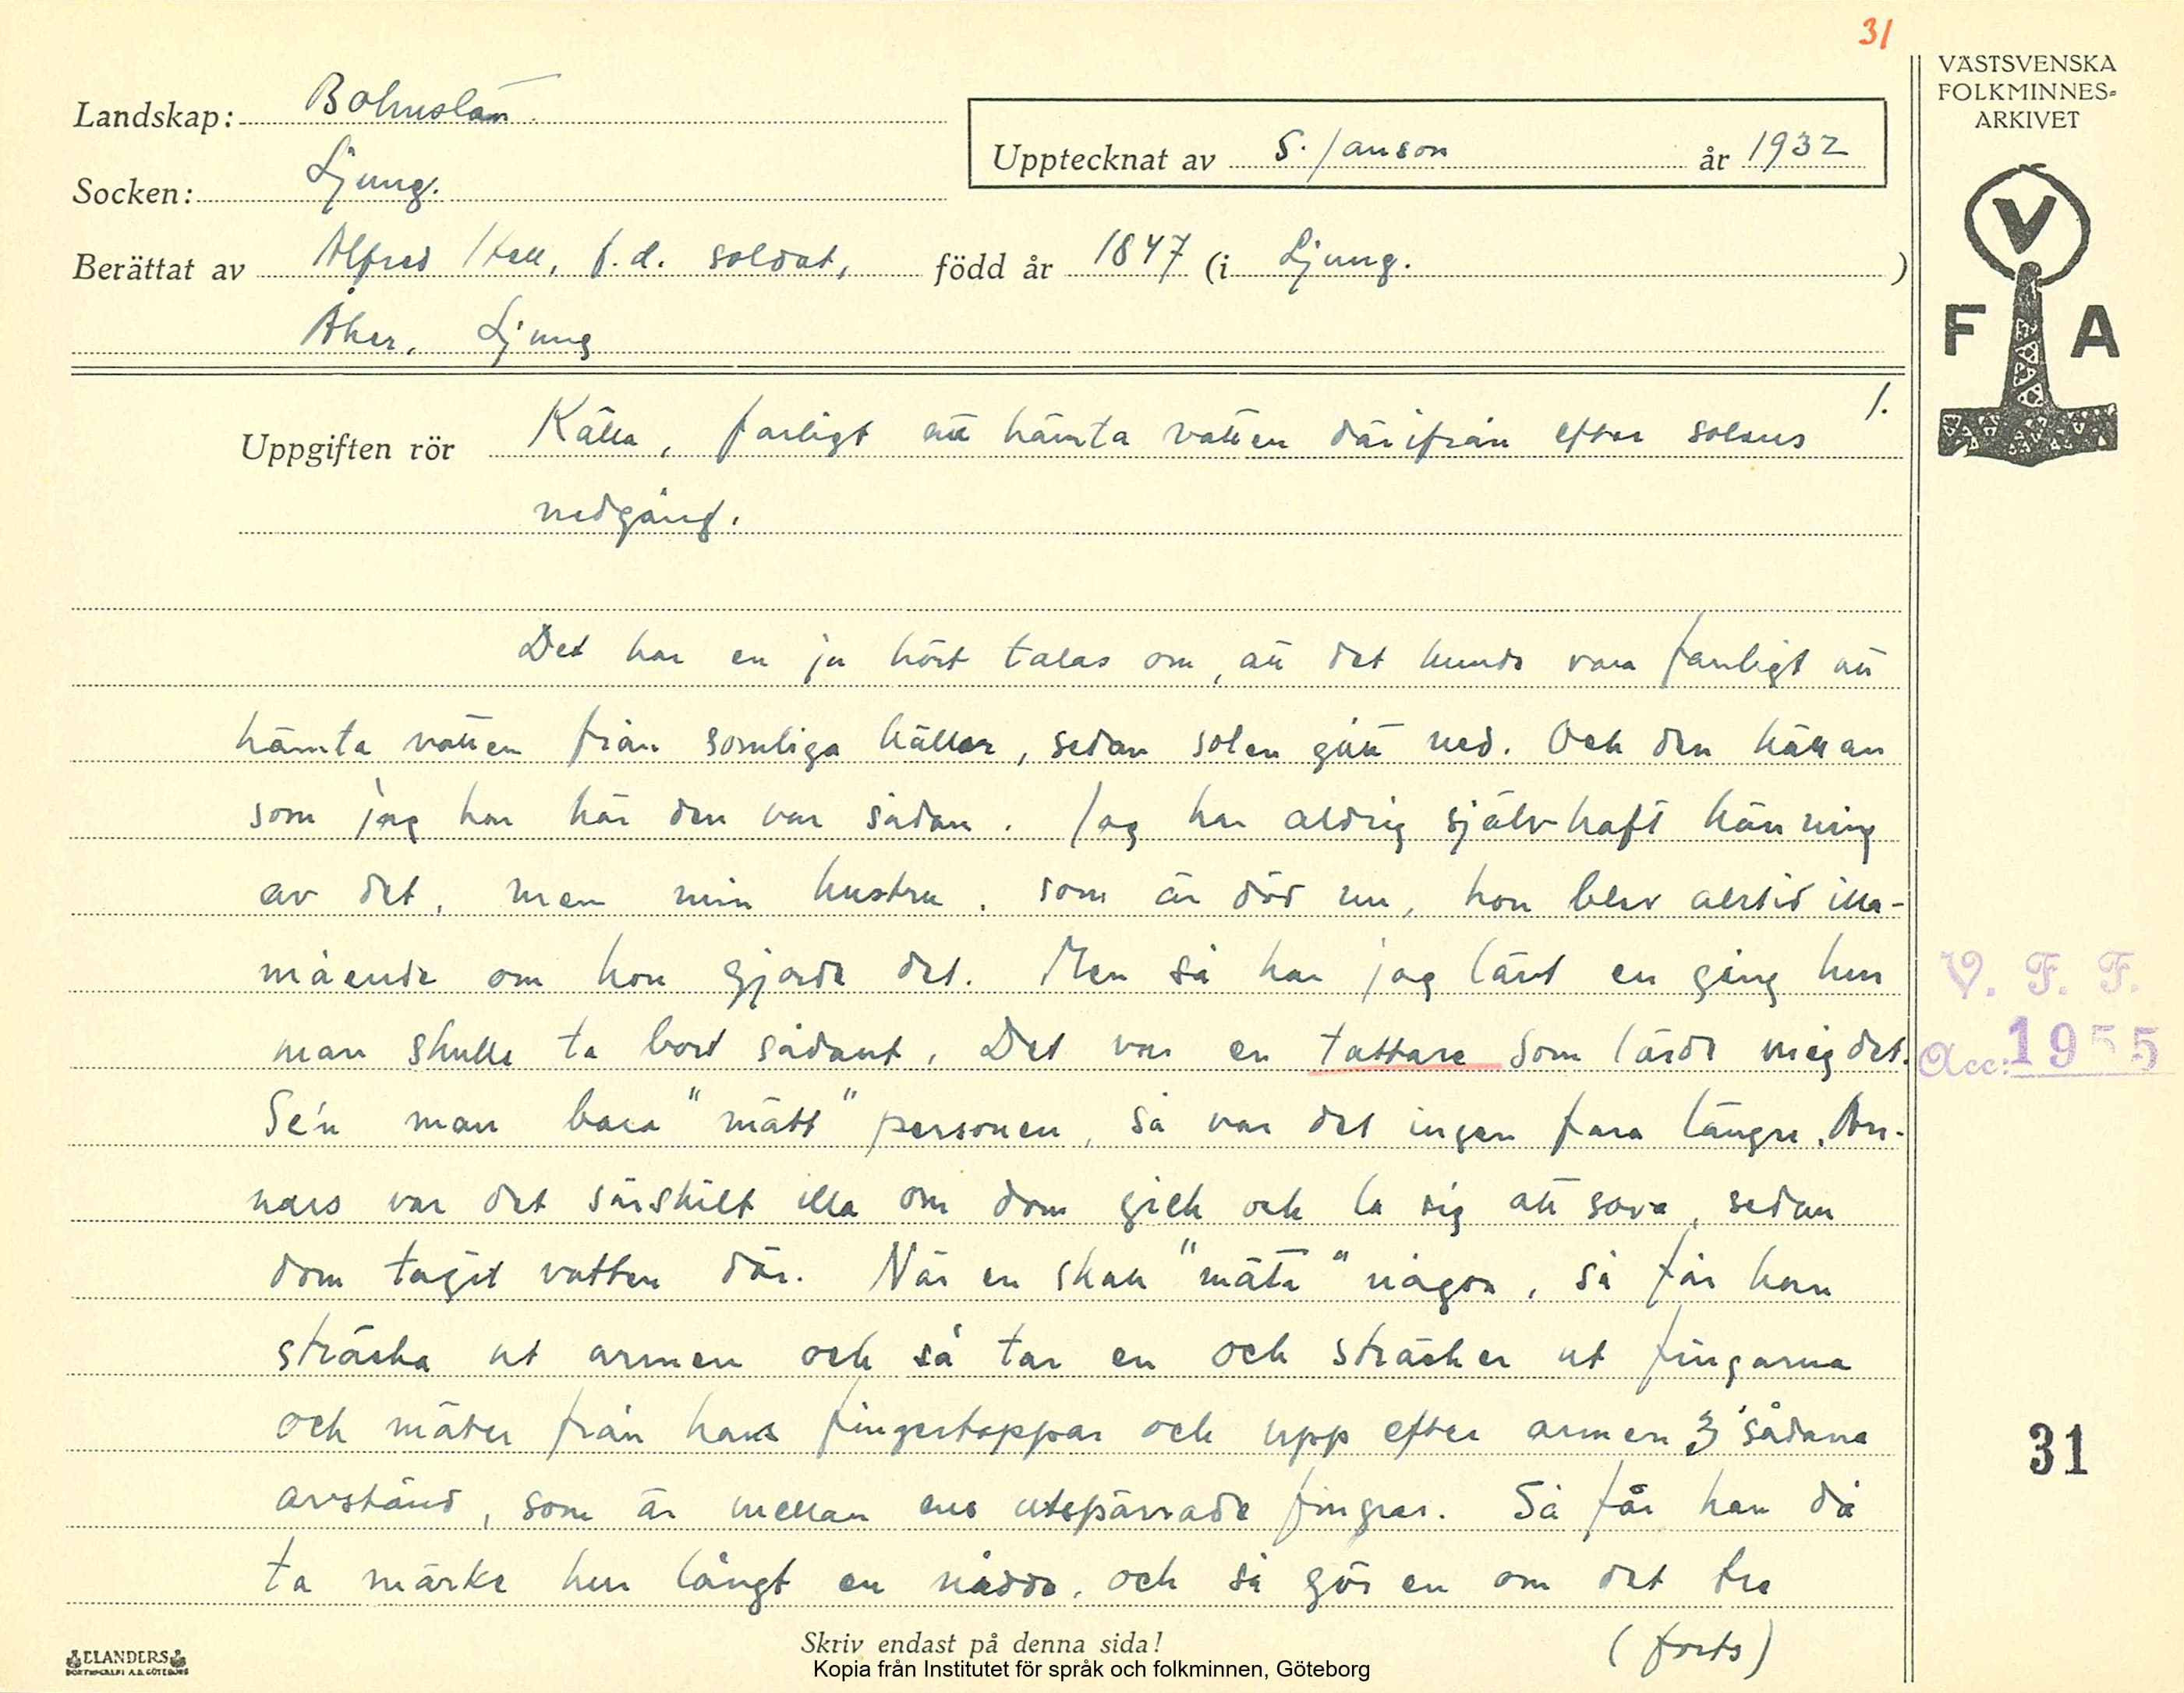 31
VÄSTSVENSKA
FOLKMINNES-
ARKIVET
Landskap: Bohuslän.
Upptecknat av S. Janson år 1932
Socken: Ljung.
V
F A
Berättat av Alfred f.d. soldat, född år 1847 (i Ljung. )
Åker. Ljung
1.
Uppgiften rör Källa, farligt att hämta vatten därifrån efter solens
nedgång.
Det har en ju hört talas om, att det kunde vara farligt att
hämta vatten från somliga källor, sedan solen gått ned. Och den källan
som jag har här den var sådan. Jag har aldrig själv haft känning
av det, men min hustru, som är död nu, hon blev alltid illa-
mående om hon gjorde det. Men så har jag lärt en gång hur
man skulle ta bort sådant. Det var en tattare som lärde mig det.
Se'n man bara "mätt" personen, så var det ingen fara längre. An-
nars var det särskilt illa om dom gick och la sig att sova, sedan
dom tagit vatten där. När en skall "mäta" någon, så får han
sträcka ut armen och så tar en och sträcker ut fingarna
och mäter från hans fingertoppar och upp efter armen 3 sådana
avstånd, som är mellan ens utspärrade fingrar. Så får han då
ta märke hur långt en nådde, och så gör en om det tre
(forts)
V. F. F.
Acc: 1955
31
ELANDERS
BOKTRYCKERI A.B. GÖTEBORG
Skriv endast på denna sida!
Kopia från Institutet för språk och folkminnen, Göteborg